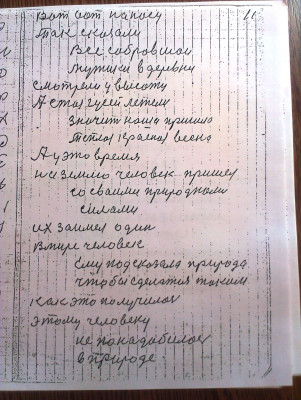 11
Вот вот на носу
Так сказали
Все собравшои
Мутики в деревни
смотрели у высоту
А стоя гусей летели
значит наша пришла
Тёплая красная весна
А у это время
на землю человек пришел
со сваими природными
силами
их заимел один
В мире человек
Ему подсказала природа
что бы сделатся таким
как это получилося
этому человеку
не понадабилося
в природе